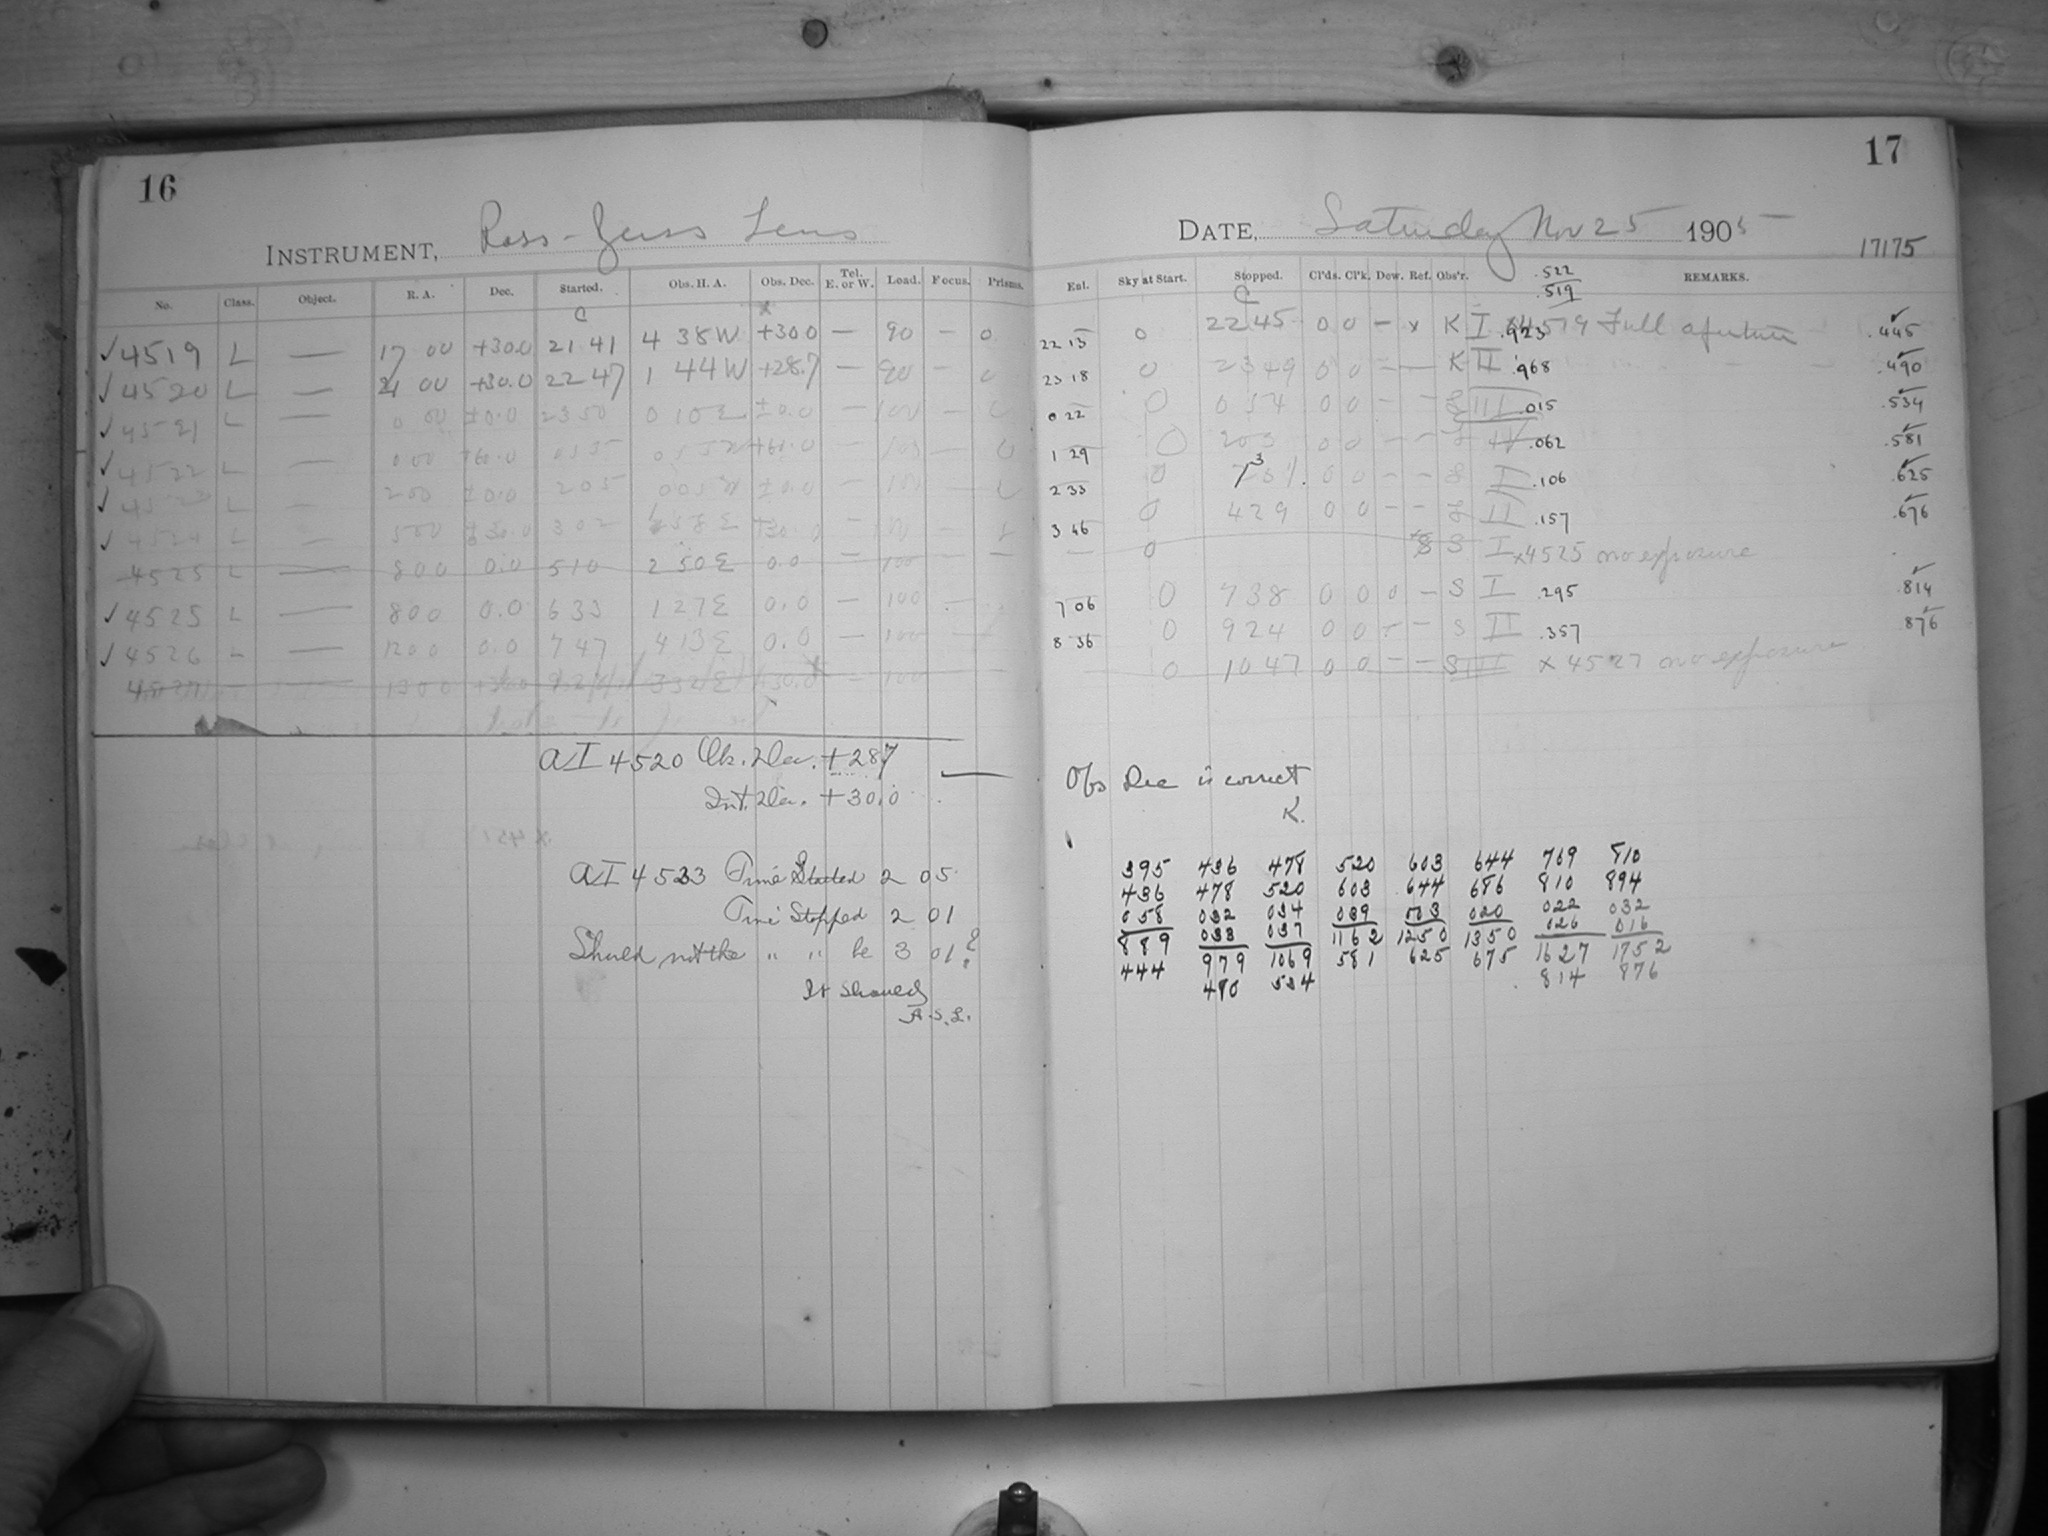 16
INSTRUMENT, Ross-Zeiss Lens
No. Class. Object. R. A. Dec. Started. Obs. H. A. Obs. Dec. Tel. E. or W. Load. Focus. Prisms.
C x
✓ 4519 L — 17 00 +30.0 21 41 4 38W +30 0 — 90 — 0
✓ 4520 L — 21 00 +30.0 22 47 1 44W +28.7 — 90 — 0
✓ 4521 L — 0 00 ±0.0 23 50 0 10E ±0.0 — 100 —
✓ 4522 L — 0 00 +60.0 0 55 +60.0 — 100 — 0
✓ L — 2 00 ±0.0 2 05 0 05 W ±0.0 — 100 —
✓ 4524 L — 5 00 +30.0 3 02 1 58 E +30.0 —
4525 L — 8 00 0.0 5 10 2 50 E 0.0 — 100 — —
✓ 4525 L — 8 00 0.0 6 33 1 27 E 0.0 — 100 —
✓ 4526 — — 12 00 0.0 7 47 4 13 E 0.0 — 100 —
4527 — 13 00 3 32 E +30.0 — 100 —
AI 4520 Ob. Dec. +287 —
Int. Dec. +30.0
AI 4523 Time Started 2 05
Time Stopped 2 01
Should not the " " be 3 01?
It should
A.S.L.
17
DATE, Saturday Nov 25 1905
17175
Exl. Sky at Start. Stopped. Cl'ds. Cl'k. Dew. Ref. Obs'r. .522 .519 REMARKS.
C
22 13 0 22 45 0 0 — x K I .923 x4519 Full aperture .445
23 18 0 23 49 0 0 — — K II .968 .490
0 22 0 0 54 0 0 — — L III .015 .534
1 29 0 2 03 0 0 — — L IV .062 .581
2 33 0 0 0 — — L I .106 .625
3 46 0 4 29 0 0 — — L II .157 .676
— 0 S I x4525 no exposure
7 06 0 7 38 0 0 0 — S I .295 .814
8 36 0 9 24 0 0 — — S II .357 .876
0 10 47 0 0 — — S III x 4527 no exposure
Obs Dec is correct
K.
395 436 478 520 603 644 769 810
436 478 520 603 644 686 810 894
058 032 034 039 003 020 022 032
889 033 037 1162 1250 1350 026 016
444 979 1069 581 625 675 1627 1752
490 534 814 876